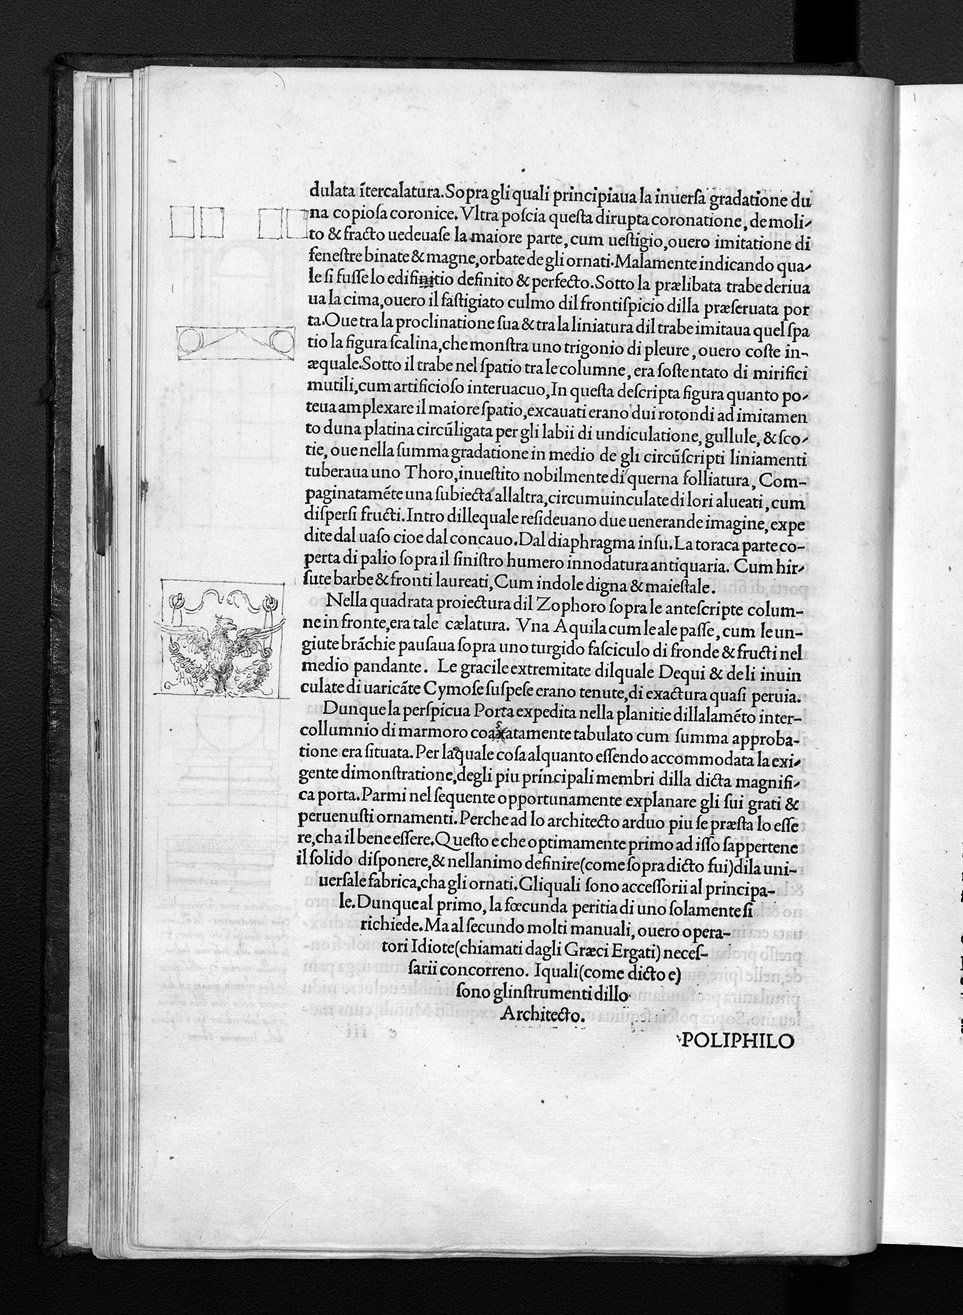 dulata ĩtercalatura. Sopra gli quali principiaua la inuerſa gradatione du
na copioſa coronice. Vltra poſcia queſta dirupta coronatione, de moli-
to & fracto uedeuaſe la maiore parte, cum ueſtigio, ouero imitatione di
feneſtre binate & magne, orbate degli ornati. Malamente indicando qua-
le ſi fuſſe lo edifinitio definito & perfecto. Sotto la prælibata trabe deriua
ua la cima, ouero il faſtigiato culmo dil frontiſpicio dilla præſeruata por
ta. Oue tra la proclinatione ſua & tra la liniatura dil trabe imitaua quel ſpa
tio la figura ſcalina, che monſtra uno trigonio di pleure, ouero coſte in-
æquale. Sotto il trabe nel ſpatio tra le columne, era ſoſtentato di mirifici
mutili, cum artificioſo interuacuo, In queſta deſcripta figura quanto po-
teua amplexare il maiore ſpatio, excauati erano dui rotondi ad imitamen
to duna platina circũligata per gli labii di undiculatione, gullule, & ſco-
tie, oue nella ſumma gradatione in medio de gli circũſcripti liniamenti
tuberaua uno Thoro, inueſtito nobilmente di querna folliatura, Com-
paginatamẽte una ſubiecta allaltra, circumuinculate di lori alueati, cum
diſperſi fructi. Intro dillequale reſideuano due uenerande imagine, expe
dite dal uaſo cioe dal concauo. Dal diaphragma inſu. La toraca parte co-
perta di palio ſopra il ſiniſtro humero innodatura antiquaria. Cum hir-
ſute barbe & fronti laureati, Cum indole digna & maieſtale.
Nella quadrata proiectura dil Zophoro ſopra le anteſcripte colum-
ne in fronte, era tale cælatura. Vna Aquila cum le ale paſſe, cum le un-
giute brãchie pauſaua ſopra uno turgido faſciculo di fronde & fructi nel
medio pandante. Le gracile extremitate dilquale Dequi & deli inuin
culate di uaricãte Cymoſe ſuſpeſe erano tenute, di exactura quaſi peruia.
Dunque la perſpicua Porta expedita nella planitie dillalamẽto inter-
collumnio di marmoro coaxatamente tabulato cum ſumma approba-
tione era ſituata. Per laquale coſa alquanto eſſendo accommodata la exi-
gente dimonſtratione, degli piu principali membri dilla dicta magnifi-
ca porta. Parmi nel ſequente opportunamente explanare gli ſui grati &
peruenuſti ornamenti. Perche ad lo architecto arduo piu ſe præſta lo eſſe
re, cha il bene eſſere. Queſto e che optimamente primo ad iſſo ſappertene
il ſolido diſponere, & nellanimo definire (come ſopra dicto fui) dila uni-
uerſale fabrica, cha gli ornati. Gliquali ſono acceſſorii al principa-
le. Dunque al primo, la fœcunda peritia di uno ſolamente ſi
richiede. Ma al ſecundo molti manuali, ouero opera-
tori Idiote (chiamati dagli Græci Ergati) neceſ-
ſarii concorreno. Iquali (come dicto e)
ſono glinſtrumenti dillo
Architecto.
POLIPHILO